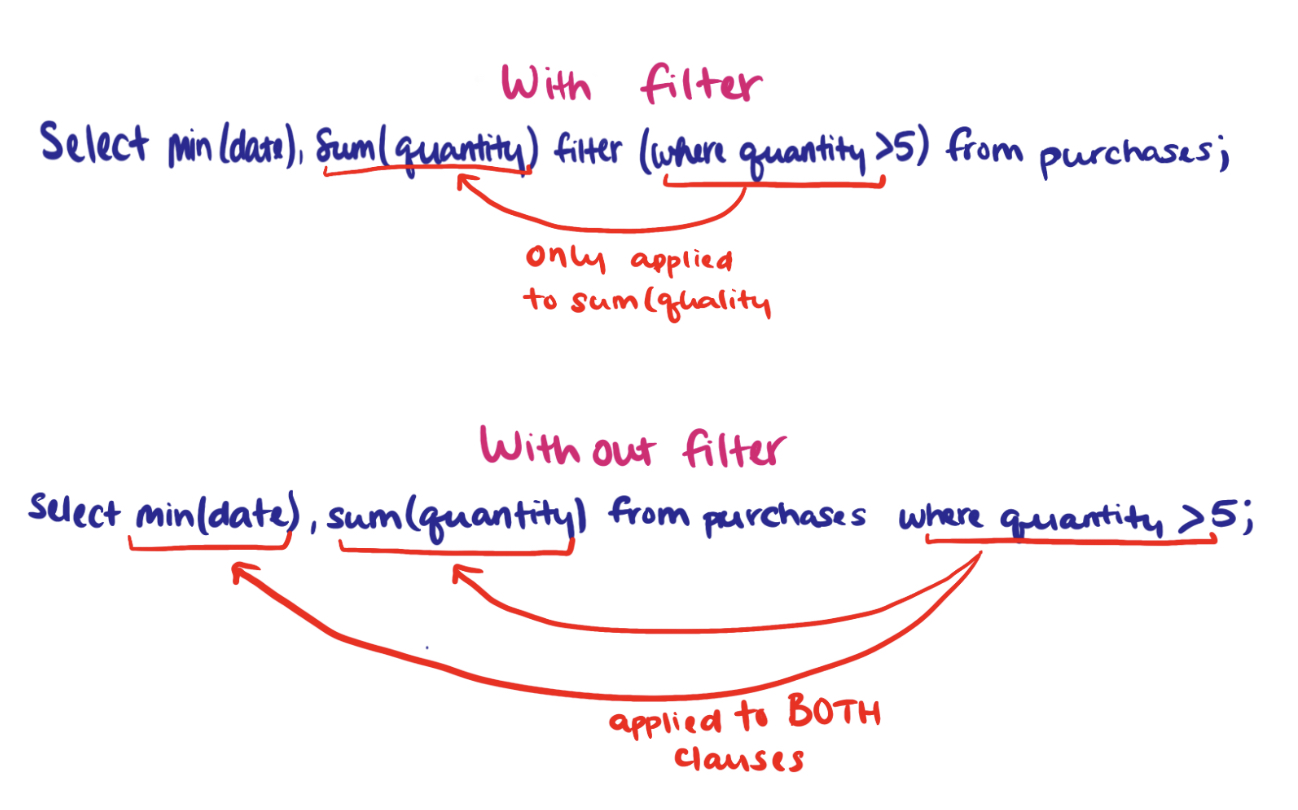 With filter
Select min(date), sum(quantity) filter (where quantity >5) from purchases;
only applied
to sum(quality
With out filter
Select min(date), sum(quantity) from purchases where quantity >5;
applied to BOTH
clauses